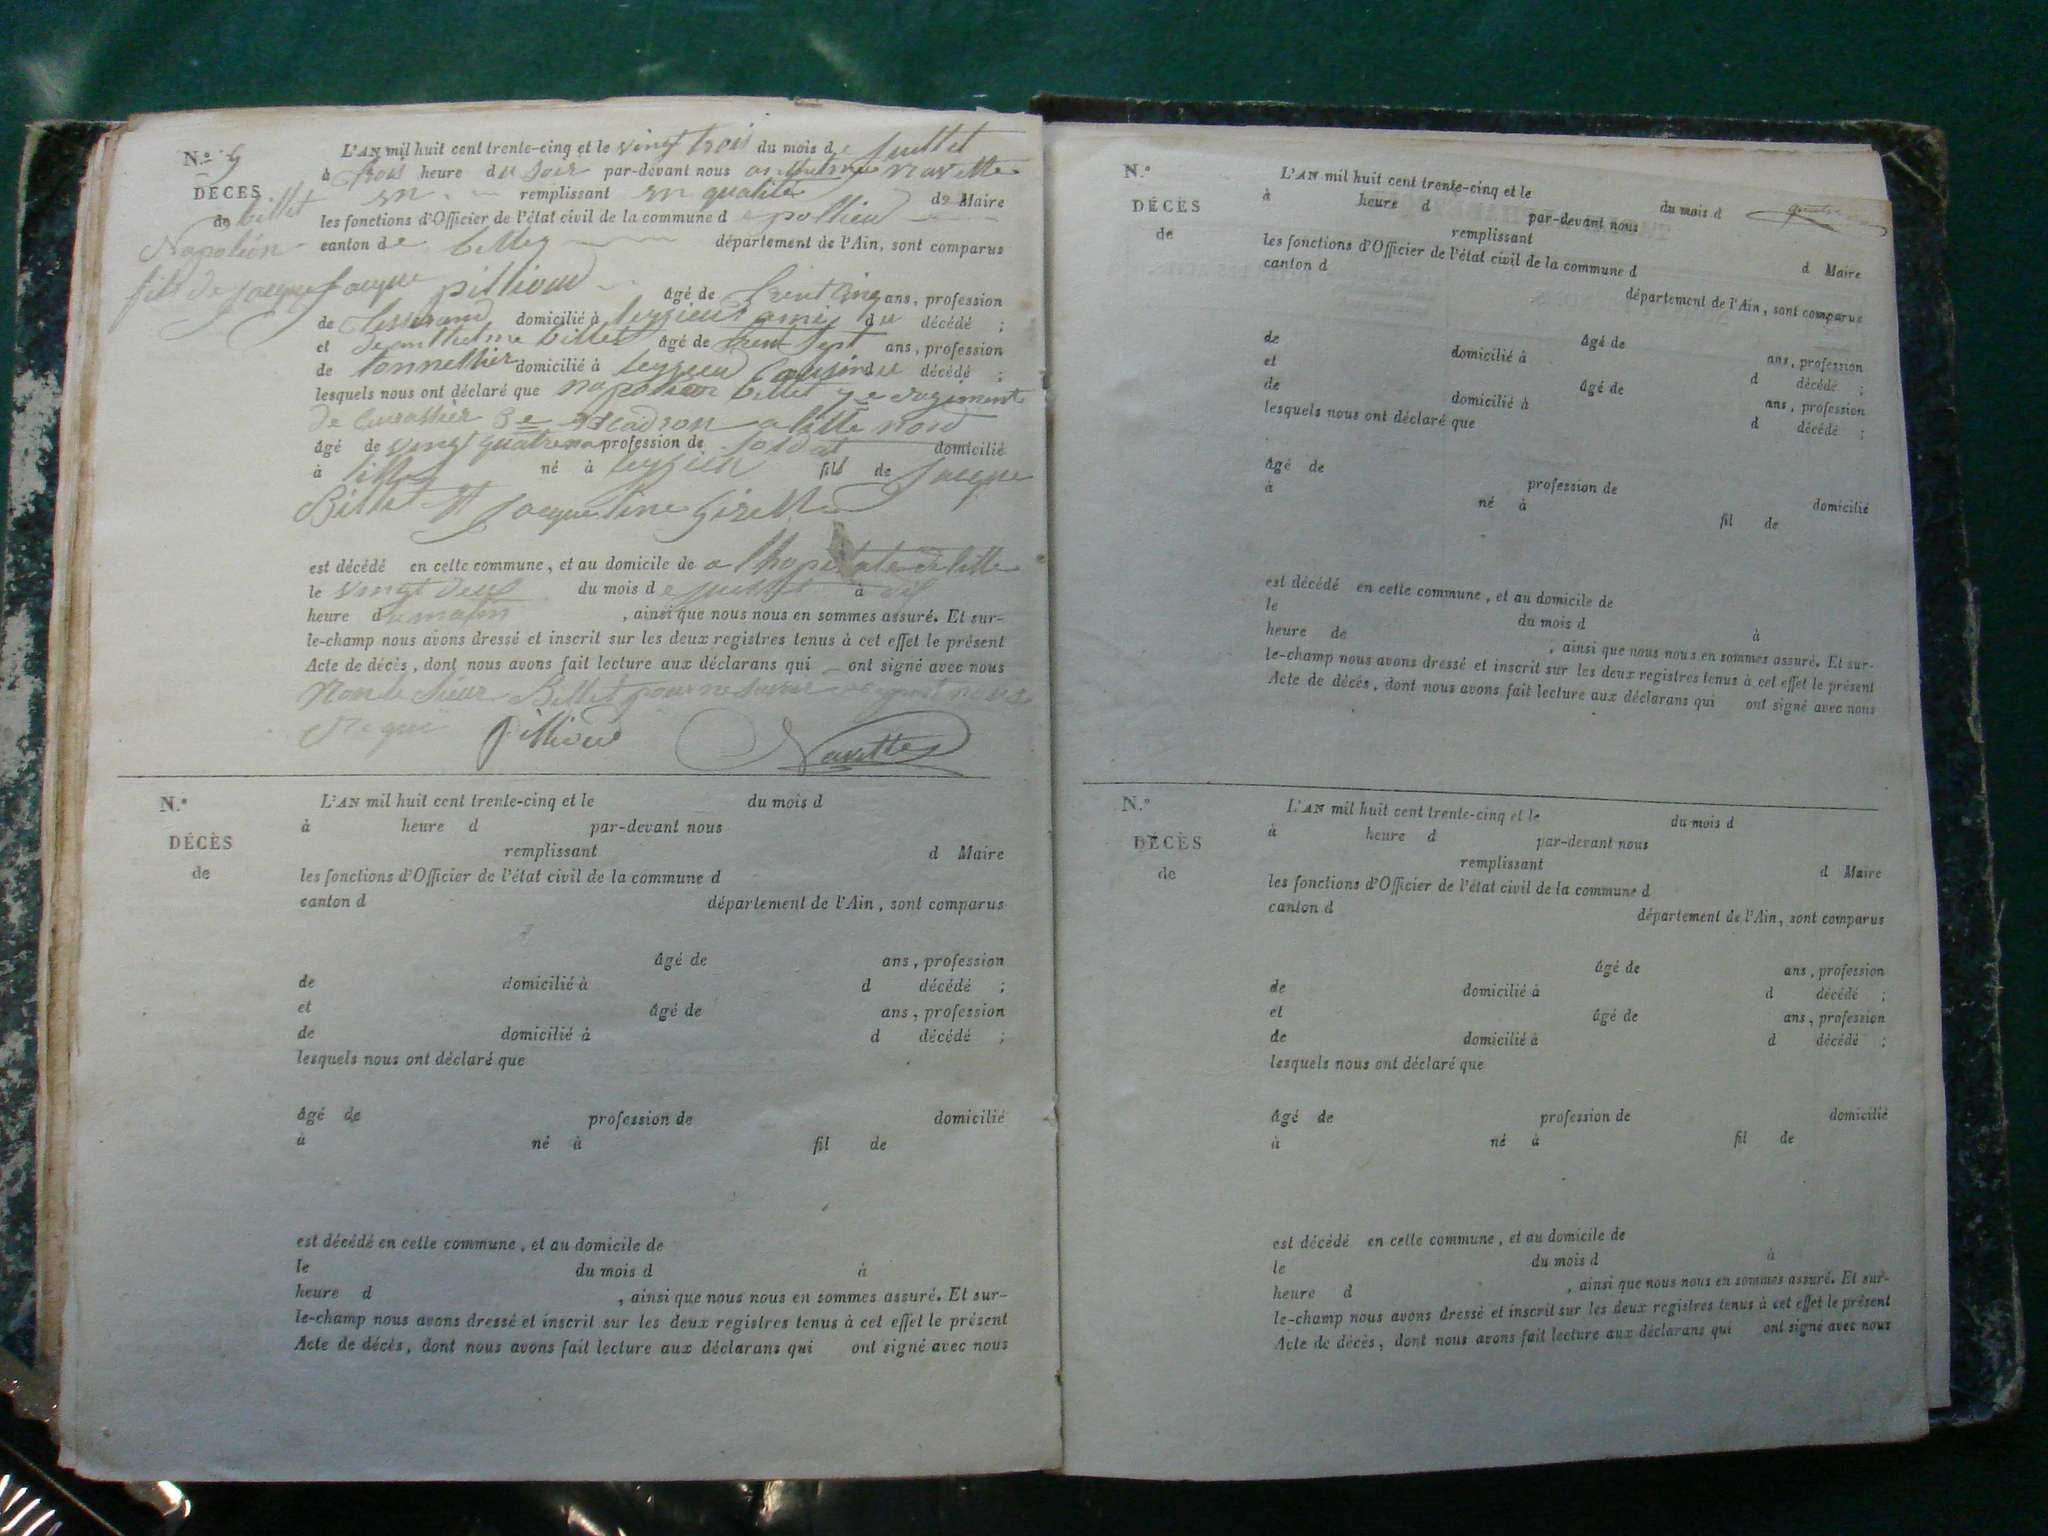 N.º 9
L'AN mil huit cent trente-cinq et le vingt trois du mois de juillet
à trois heure du soir par-devant nous anthelme navette
DÉCÈS
en remplissant en qualité de Maire
de billet
les fonctions d'Officier de l'état civil de la commune de pollieu
Napoléon
canton de belley département de l'Ain, sont comparus
fils de jacque
jacque pillioud âgé de trent cinq ans, profession
de tisserand domicilié à leyzieu ami du décédé ;
et de anthelme billet âgé de trent sept ans, profession
de tonnellier domicilié à leyzieu cousin du décédé ;
lesquels nous ont déclaré que napoléon billet 7e regiment
de cuirassier 3e escadron a lille nord
âgé de vingt quatre profession de soldat domicilié
à lille né à leyzieu fils de jacque
Billet et jacqueline
est décédé en cette commune, et au domicile de a lhopitale de lille
le vingt deux du mois de juillet à
heure du matin , ainsi que nous nous en sommes assuré. Et sur-
le-champ nous avons dressé et inscrit sur les deux registres tenus à cet effet le présent
Acte de décès, dont nous avons fait lecture aux déclarans qui ont signé avec nous
Non le sieur Billet pour ne savoir
Pillioud Navette
N.º
L'AN mil huit cent trente-cinq et le du mois d
à heure d par-devant nous
DÉCÈS
remplissant d Maire
de
les fonctions d'Officier de l'état civil de la commune d
canton d département de l'Ain, sont comparus
âgé de ans, profession
de domicilié à d décédé ;
et âgé de ans, profession
de domicilié à d décédé ;
lesquels nous ont déclaré que
âgé de profession de domicilié
à né à fil de
est décédé en cette commune, et au domicile de
le du mois d à
heure d , ainsi que nous nous en sommes assuré. Et sur-
le-champ nous avons dressé et inscrit sur les deux registres tenus à cet effet le présent
Acte de décès, dont nous avons fait lecture aux déclarans qui ont signé avec nous
N.º
L'AN mil huit cent trente-cinq et le du mois d
à heure d par-devant nous
DÉCÈS
remplissant d Maire
de
les fonctions d'Officier de l'état civil de la commune d
canton d département de l'Ain, sont comparus
âgé de ans, profession
de domicilié à d décédé ;
et âgé de ans, profession
de domicilié à d décédé ;
lesquels nous ont déclaré que
âgé de profession de domicilié
à né à fil de
est décédé en cette commune, et au domicile de
le du mois d à
heure de , ainsi que nous nous en sommes assuré. Et sur-
le-champ nous avons dressé et inscrit sur les deux registres tenus à cet effet le présent
Acte de décès, dont nous avons fait lecture aux déclarans qui ont signé avec nous
N.º
L'AN mil huit cent trente-cinq et le du mois d
à heure d par-devant nous
DÉCÈS
remplissant d Maire
de
les fonctions d'Officier de l'état civil de la commune d
canton d département de l'Ain, sont comparus
âgé de ans, profession
de domicilié à d décédé ;
et âgé de ans, profession
de domicilié à d décédé ;
lesquels nous ont déclaré que
âgé de profession de domicilié
à né à fil de
est décédé en cette commune, et au domicile de
le du mois d à
heure d , ainsi que nous nous en sommes assuré. Et sur-
le-champ nous avons dressé et inscrit sur les deux registres tenus à cet effet le présent
Acte de décès, dont nous avons fait lecture aux déclarans qui ont signé avec nous